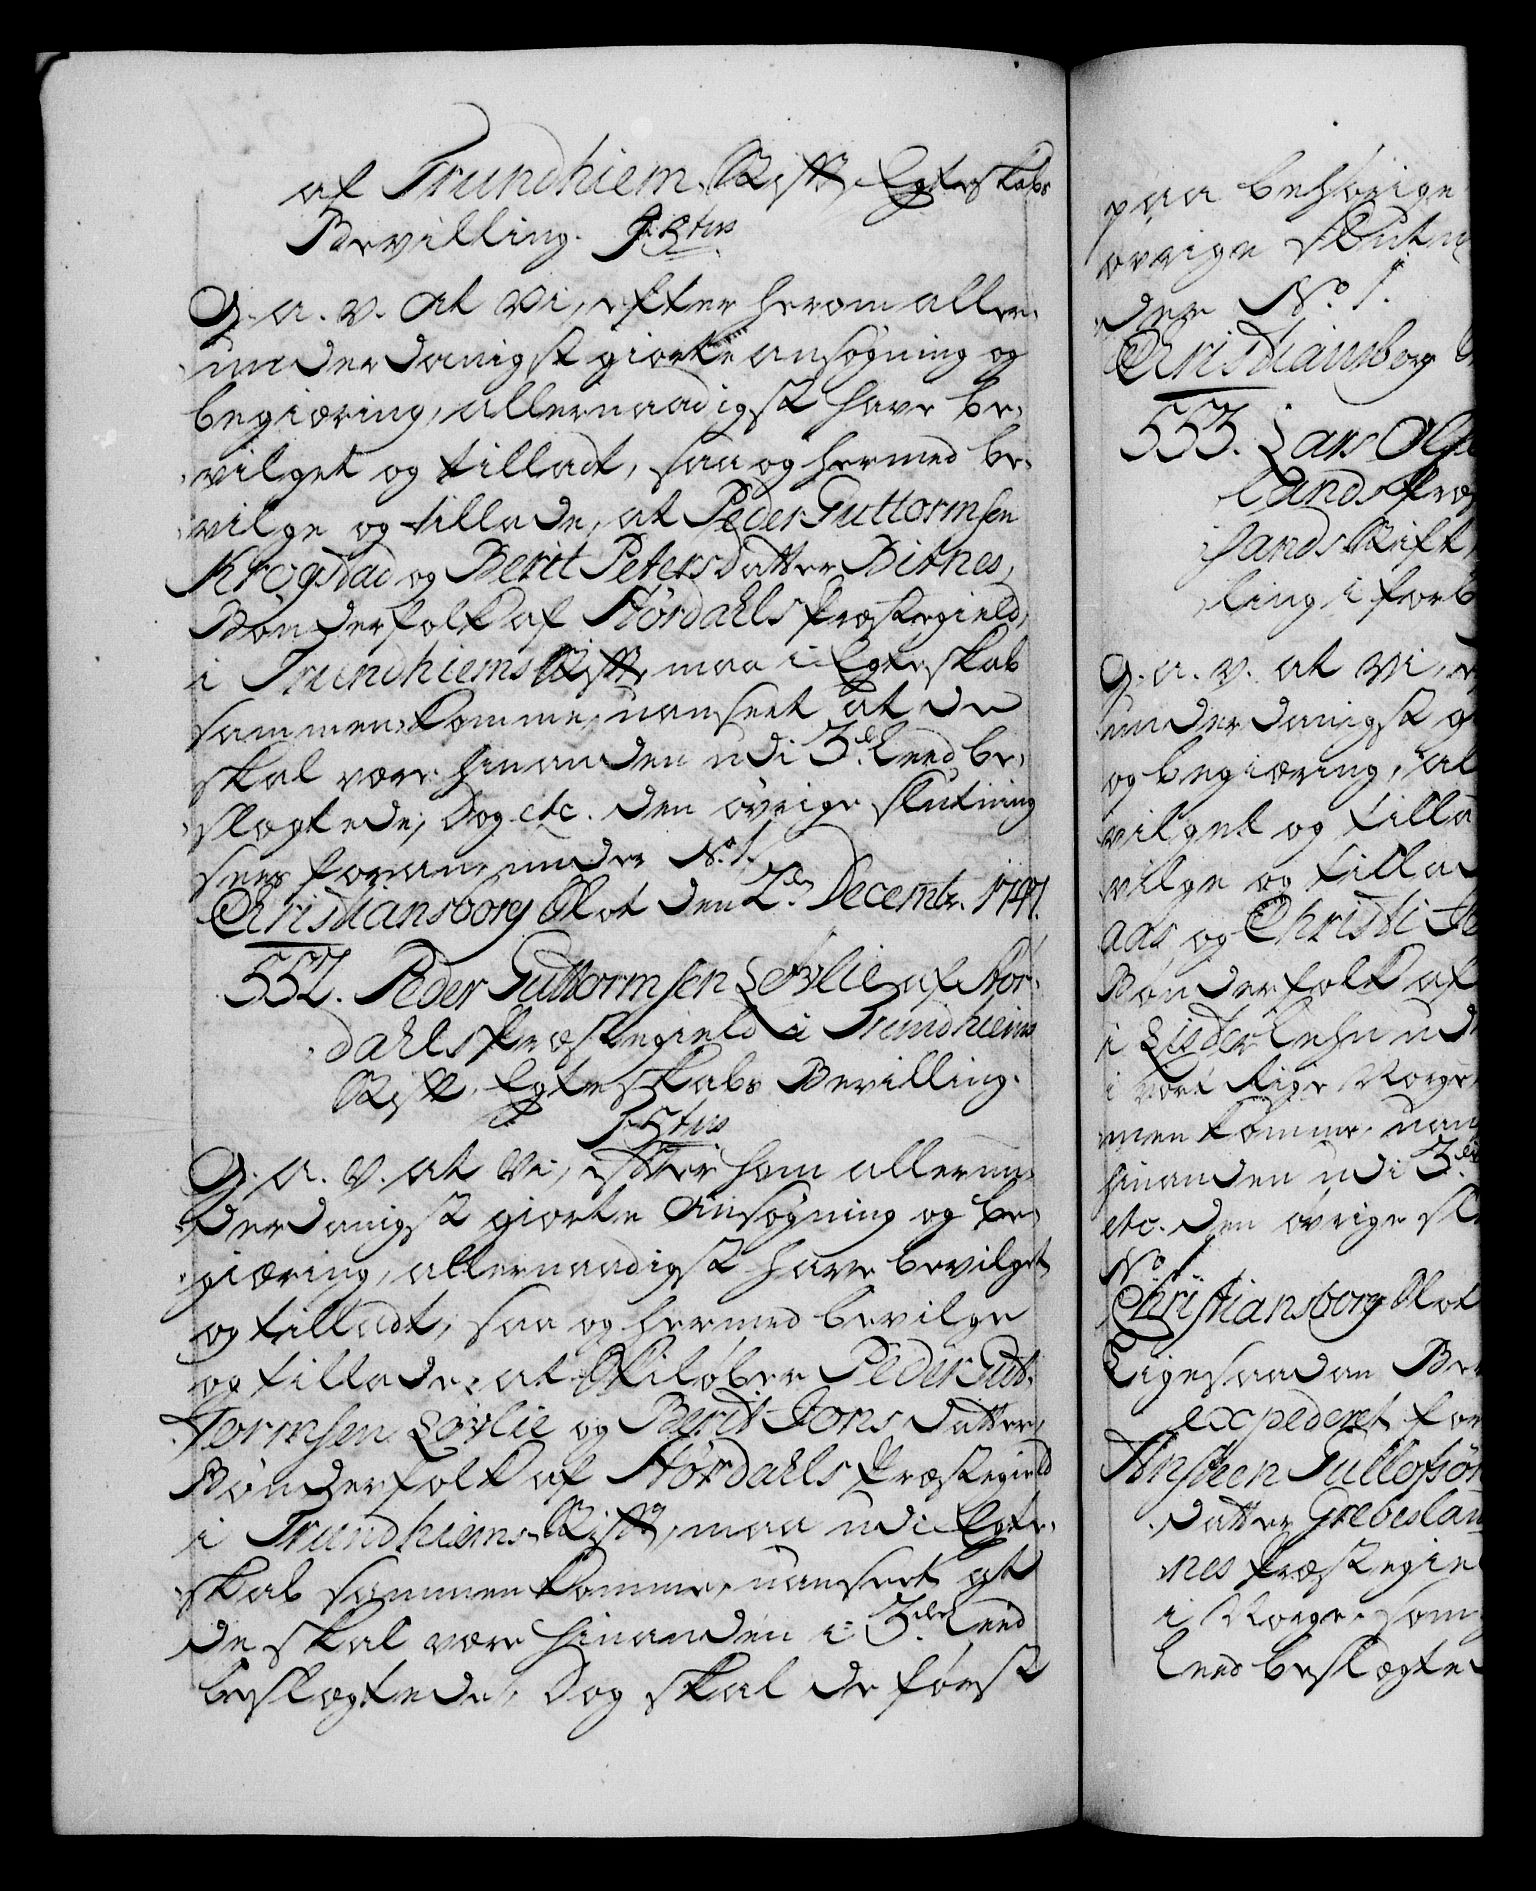 af Trundhiem Stift Egteskabs
Bevilling.
G. a. v. At Vi, efter herom aller-
underdanigst giorte ansøgning og
begiæring, allernaadigst have be-
vilget og tilladt, saa og hermed be-
vilge og tillade, at Peder Guttormsen
Krogstad og Berit Petersdatter Bitnes,
Bønderfolk af Størdahls Præstegield,
i Trundhiems Stift, maa i Egteskab
sammenkomme, uanseet at de
skal være hinanden udi 3de Leed be-
slægtede; Dog etc. den øvrige slutning
sees foran under No. 1.
Christiansborg Slot den 2den Decembr. 1747.
552. Peder Guttormsen Løvlie af Stør-
dahls Præstegield i Trundhiems
Stift, Egteskabs Bevilling.
G. A. V. at Vi, efter hans allerun-
derdanigst giorte Ansøgning og be-
giæring, allernaadigst have bevilget
og tilladt, saa og hermed bevilge
og tillade, at Skiløber Peder Gut-
tormsen Løvlie og Berit Jonsdatter,
Bønderfolk af Størdahls Præstegield
i Trundhiems Stift, maa udi Egte-
skab sammenkomme, uanseet at
de skal være hinanden i 3die Leed
beslægtede, Dog skal de først
paa behørige
øvrige Slutn
der No. 1.
Christiansborg
553. Lars
lands Præs
sands Stift
ling i forb
G. a. v. at Vi, e
underdanigst g
og begiæring, al
vilget og tilla
vilge og tillad
aas og Christi
Bønderfolk af
i Lister Lehn ud
i vort Rige Norge
men komme, uan
hinanden udi 3die
etc. den øvrige sl
No. 1
Christiansborg Slot
Ligesaadan Be
expederet for
Ansteen Gullofsøn
datter Grebeslan
nes Præstegie
i Norge, som
Leed beslægted